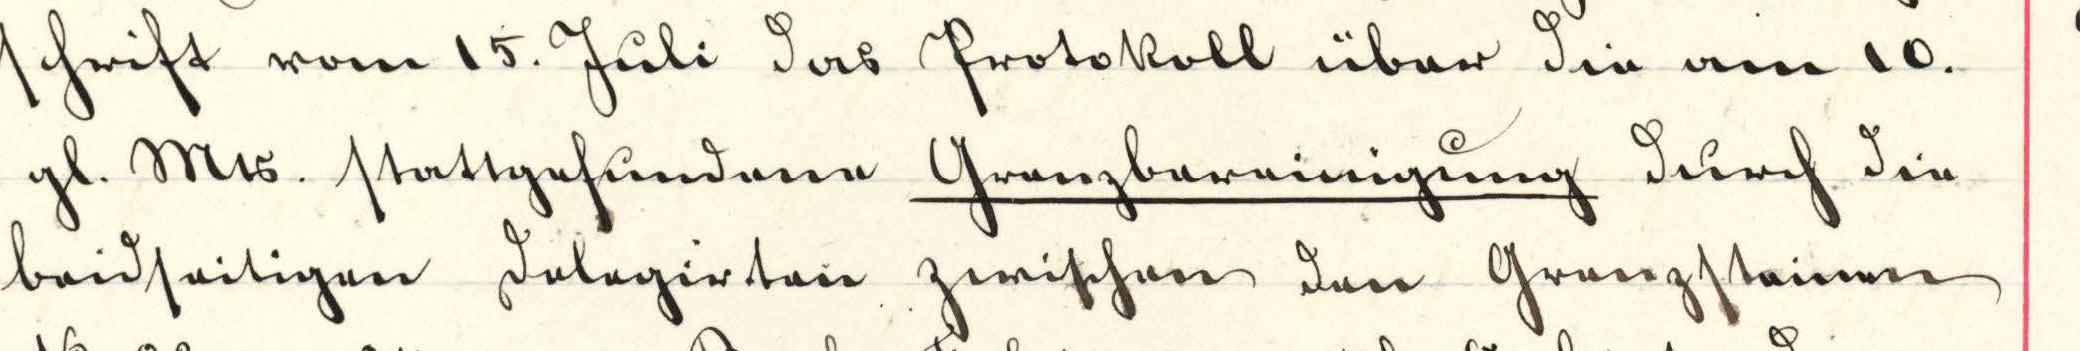 schrift vom 15. Juli das Protokoll über die am 10.
gl. Mts. stattgefundene Grenzbereinigung durch die
beidseitigen Delegirten zwischen den Grenzsteinen